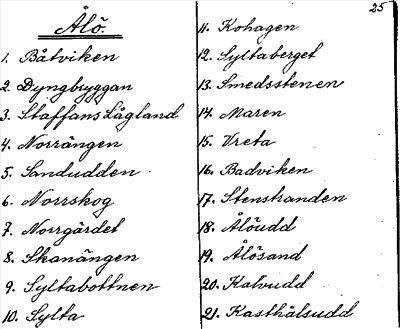 Ålö.
1. Båtviken
2. Dyngbryggan
3. Staffans Lägland
4. Norrängen
5. Sandudden
6. Norrskog
7. Norrgärdet
8. Skanängen
9. Syltabottnen
10. Sylta
25
11. Kohagen
12. Syltaberget
13. Smedsstenen
14. Maren
15. Vreta
16. Badviken
17. Stenstranden
18. Ålöudd
19. Ålösand
20. Kalvudd
21. Kasthälsudd